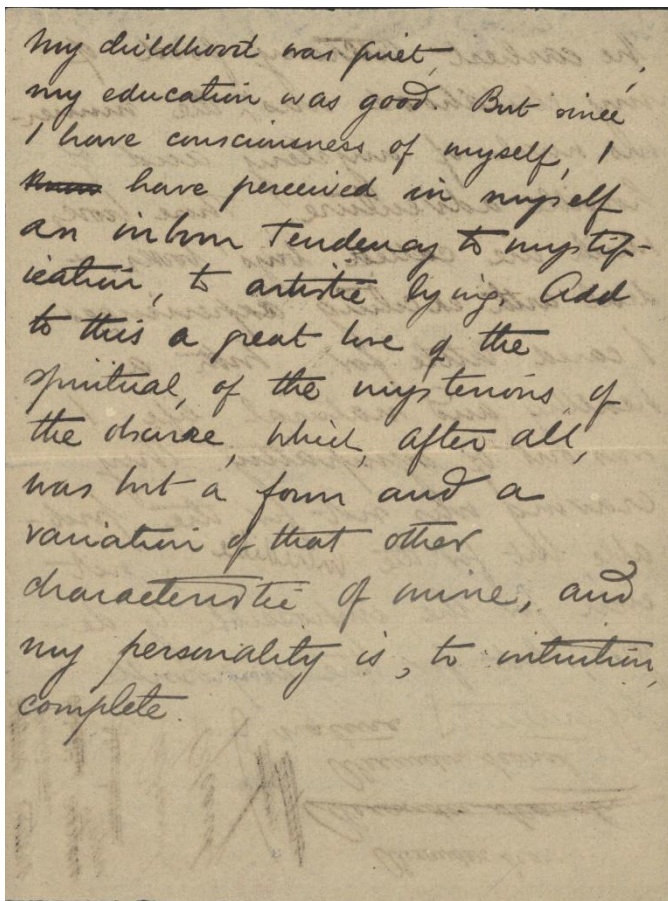 My childhood was quiet,
my education was good. But since
I have consciousness of myself, I
have perceived in myself
an inborn tendency to mystif-
ication, to artistic lying. Add
to this a great love of the
spiritual, of the mysterious of
the obscure, which, after all,
was but a form and a
variation of that other
characteristic of mine, and
my personality is, to intuition,
complete.